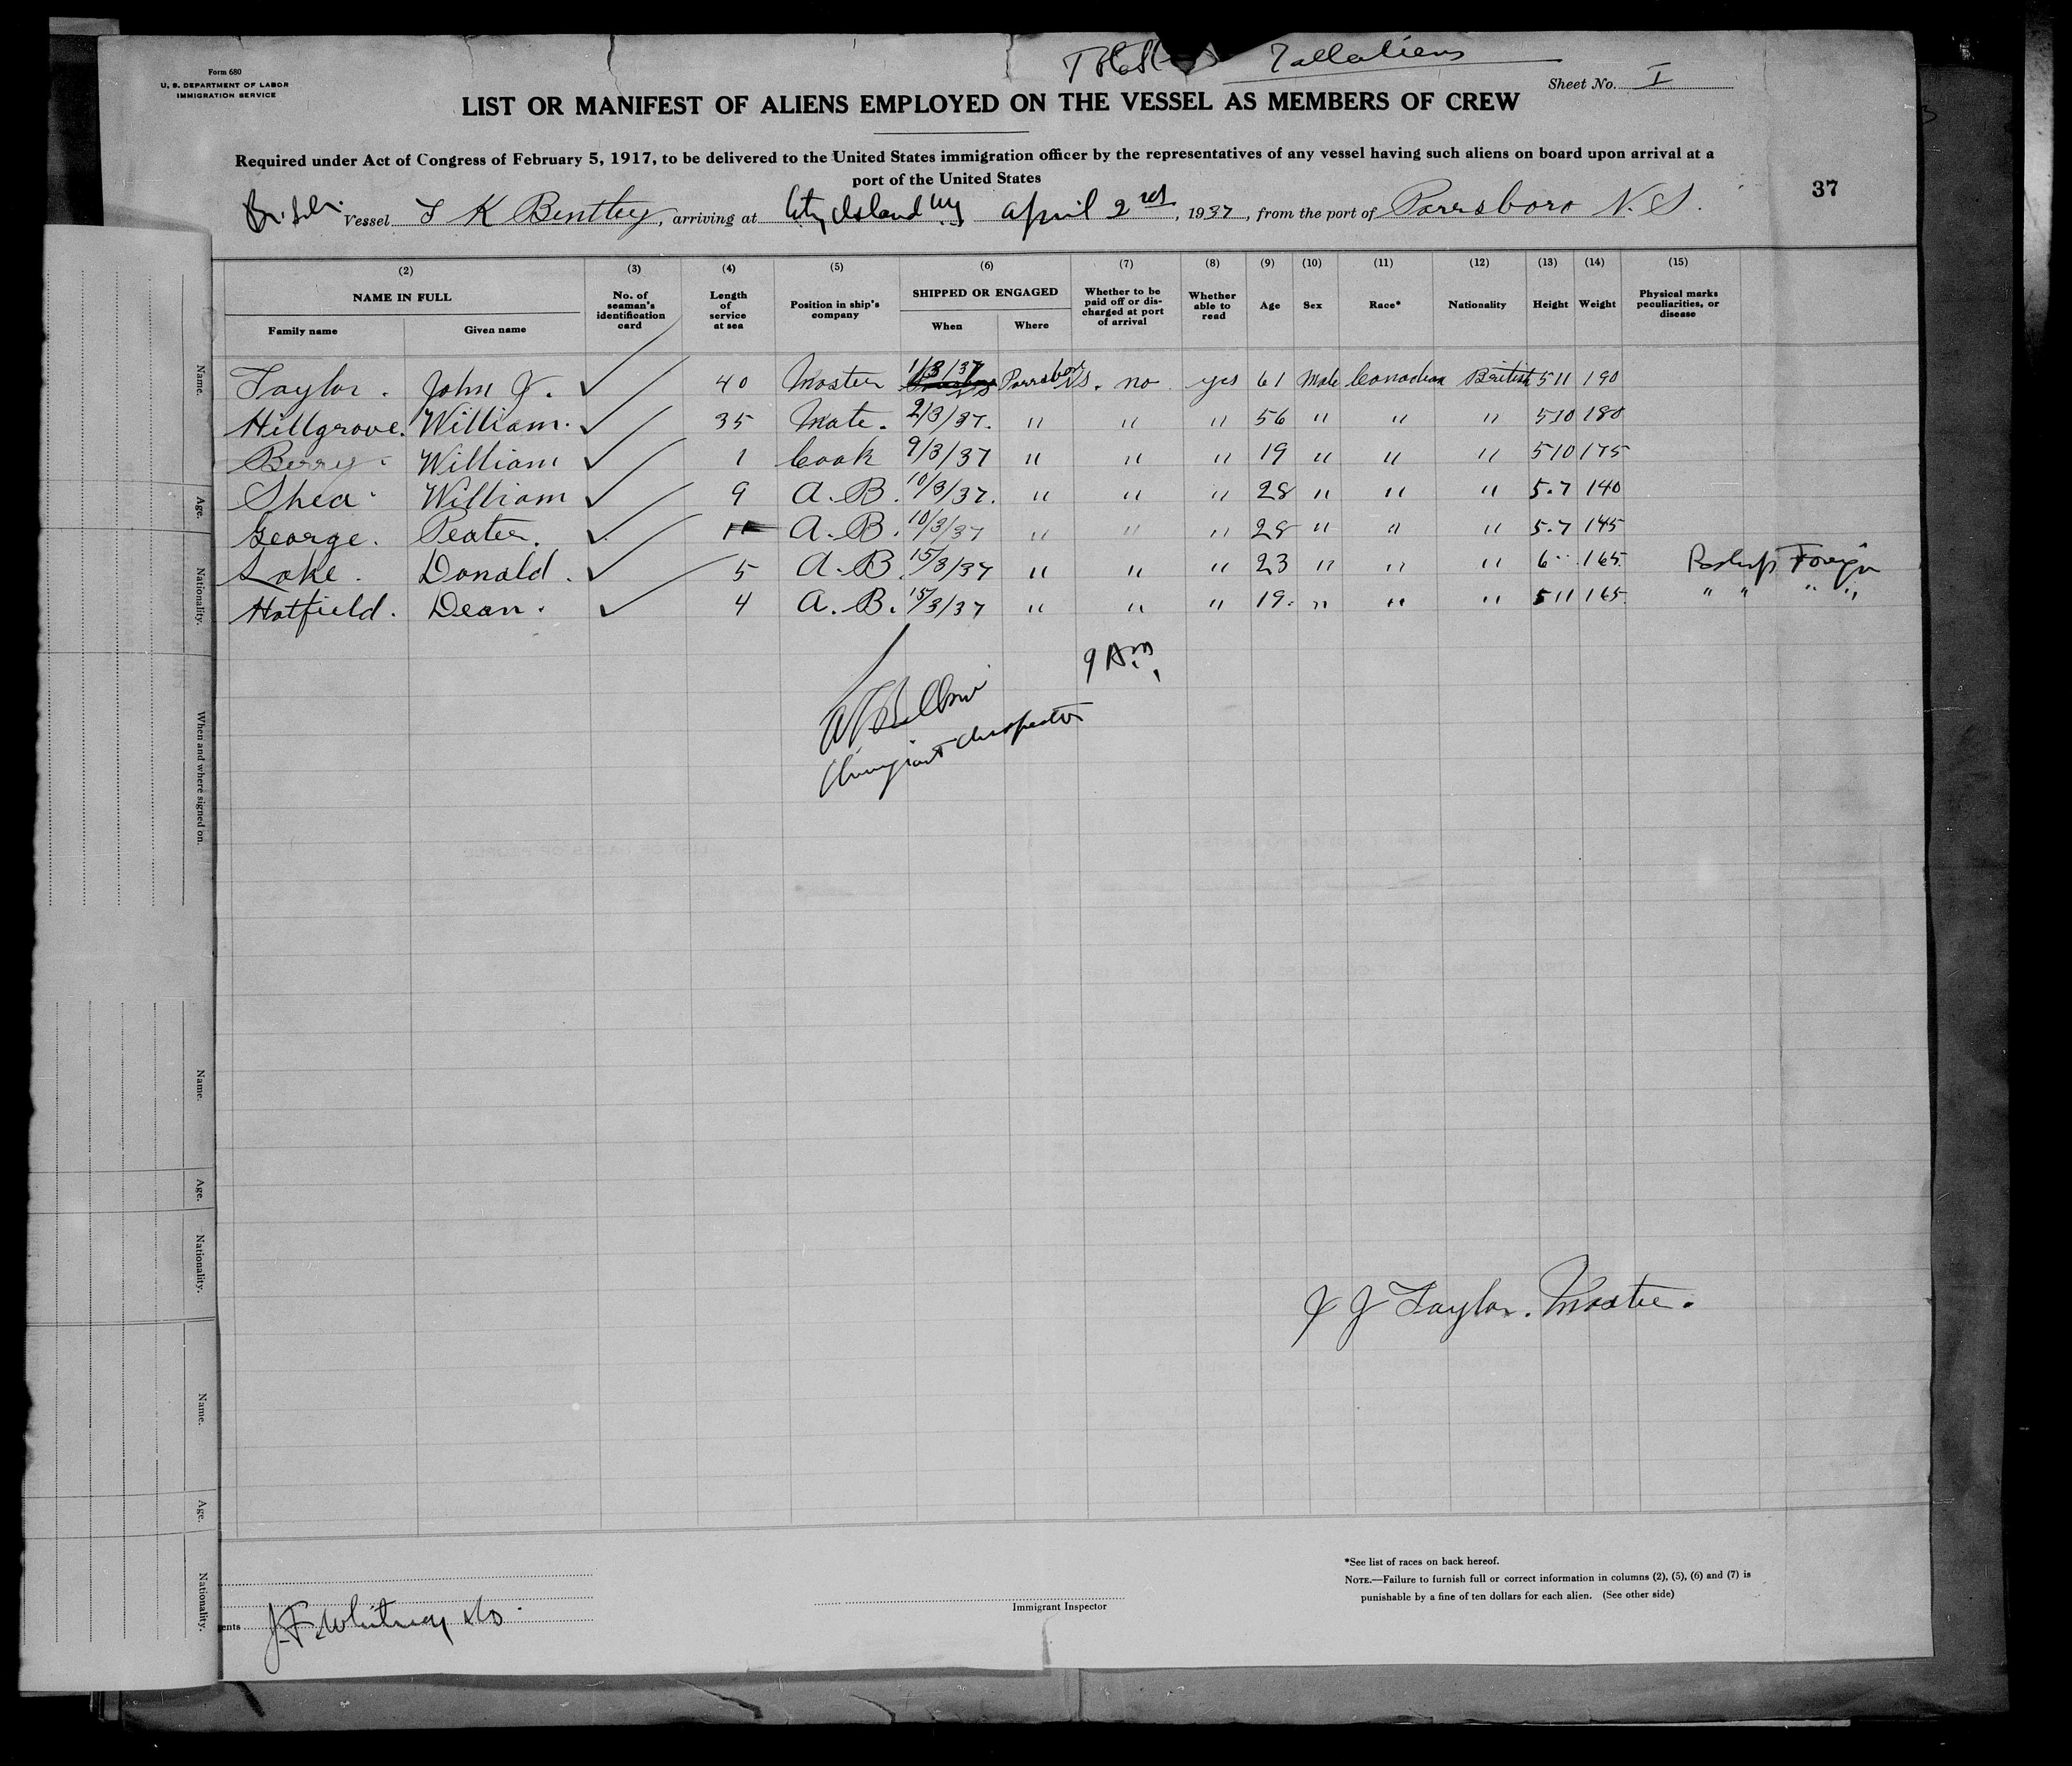 Form 680
U. S. DEPARTMENT OF LABOR
IMMIGRATION SERVICE
Total 7 all aliens
Sheet No. I
LIST OR MANIFEST OF ALIENS EMPLOYED ON THE VESSEL AS MEMBERS OF CREW
Required under Act of Congress of February 5, 1917, to be delivered to the United States immigration officer by the representatives of any vessel having such aliens on board upon arrival at a
port of the United States
37
Vessel T K Bentley, arriving at City Island NY April 2nd, 1937, from the port of Parrsboro N. S.
(2) (3) (4) (5) (6) (7) (8) (9) (10) (11) (12) (13) (14) (15)
NAME IN FULL No. of seaman's identification card Length of service at sea Position in ship's company SHIPPED OR ENGAGED Whether to be paid off or discharged at port of arrival Whether able to read Age Sex Race* Nationality Height Weight Physical marks peculiarities, or disease
Family name Given name When Where
Taylor. John J. ✓ 40 Master 1/3/37 Parrsboro NS. no yes 61 Male Canadian British 511 190
Hillgrove. William. ✓ 35 Mate. 2/3/37. " " " 56 " " " 510 180
Berry. William ✓ 1 Cook 9/3/37 " " " 19 " " " 510 175
Shea. William ✓ 9 A. B. 10/3/37. " " " 28 " " " 5.7 140
George. Peater. ✓ A. B. 10/3/37 " " " 28 " " " 5.7 145
Lake. Donald. ✓ 5 A. B. 15/3/37 " " " 23 " " " 6 165 Foreign
Hatfield. Dean. ✓ 4 A. B. 15/3/37 " " " 19. " " " 511 165 " " " "
9 A.M.
Immigrant Inspector
J J Taylor. Master.
*See list of races on back hereof.
NOTE.—Failure to furnish full or correct information in columns (2), (5), (6) and (7) is
punishable by a fine of ten dollars for each alien. (See other side)
Immigrant Inspector
ents J. F. Whitney & Co.
Name.
Age.
Nationality.
When and where signed on.
Name.
Age.
Nationality.
Name.
Age.
Nationality.